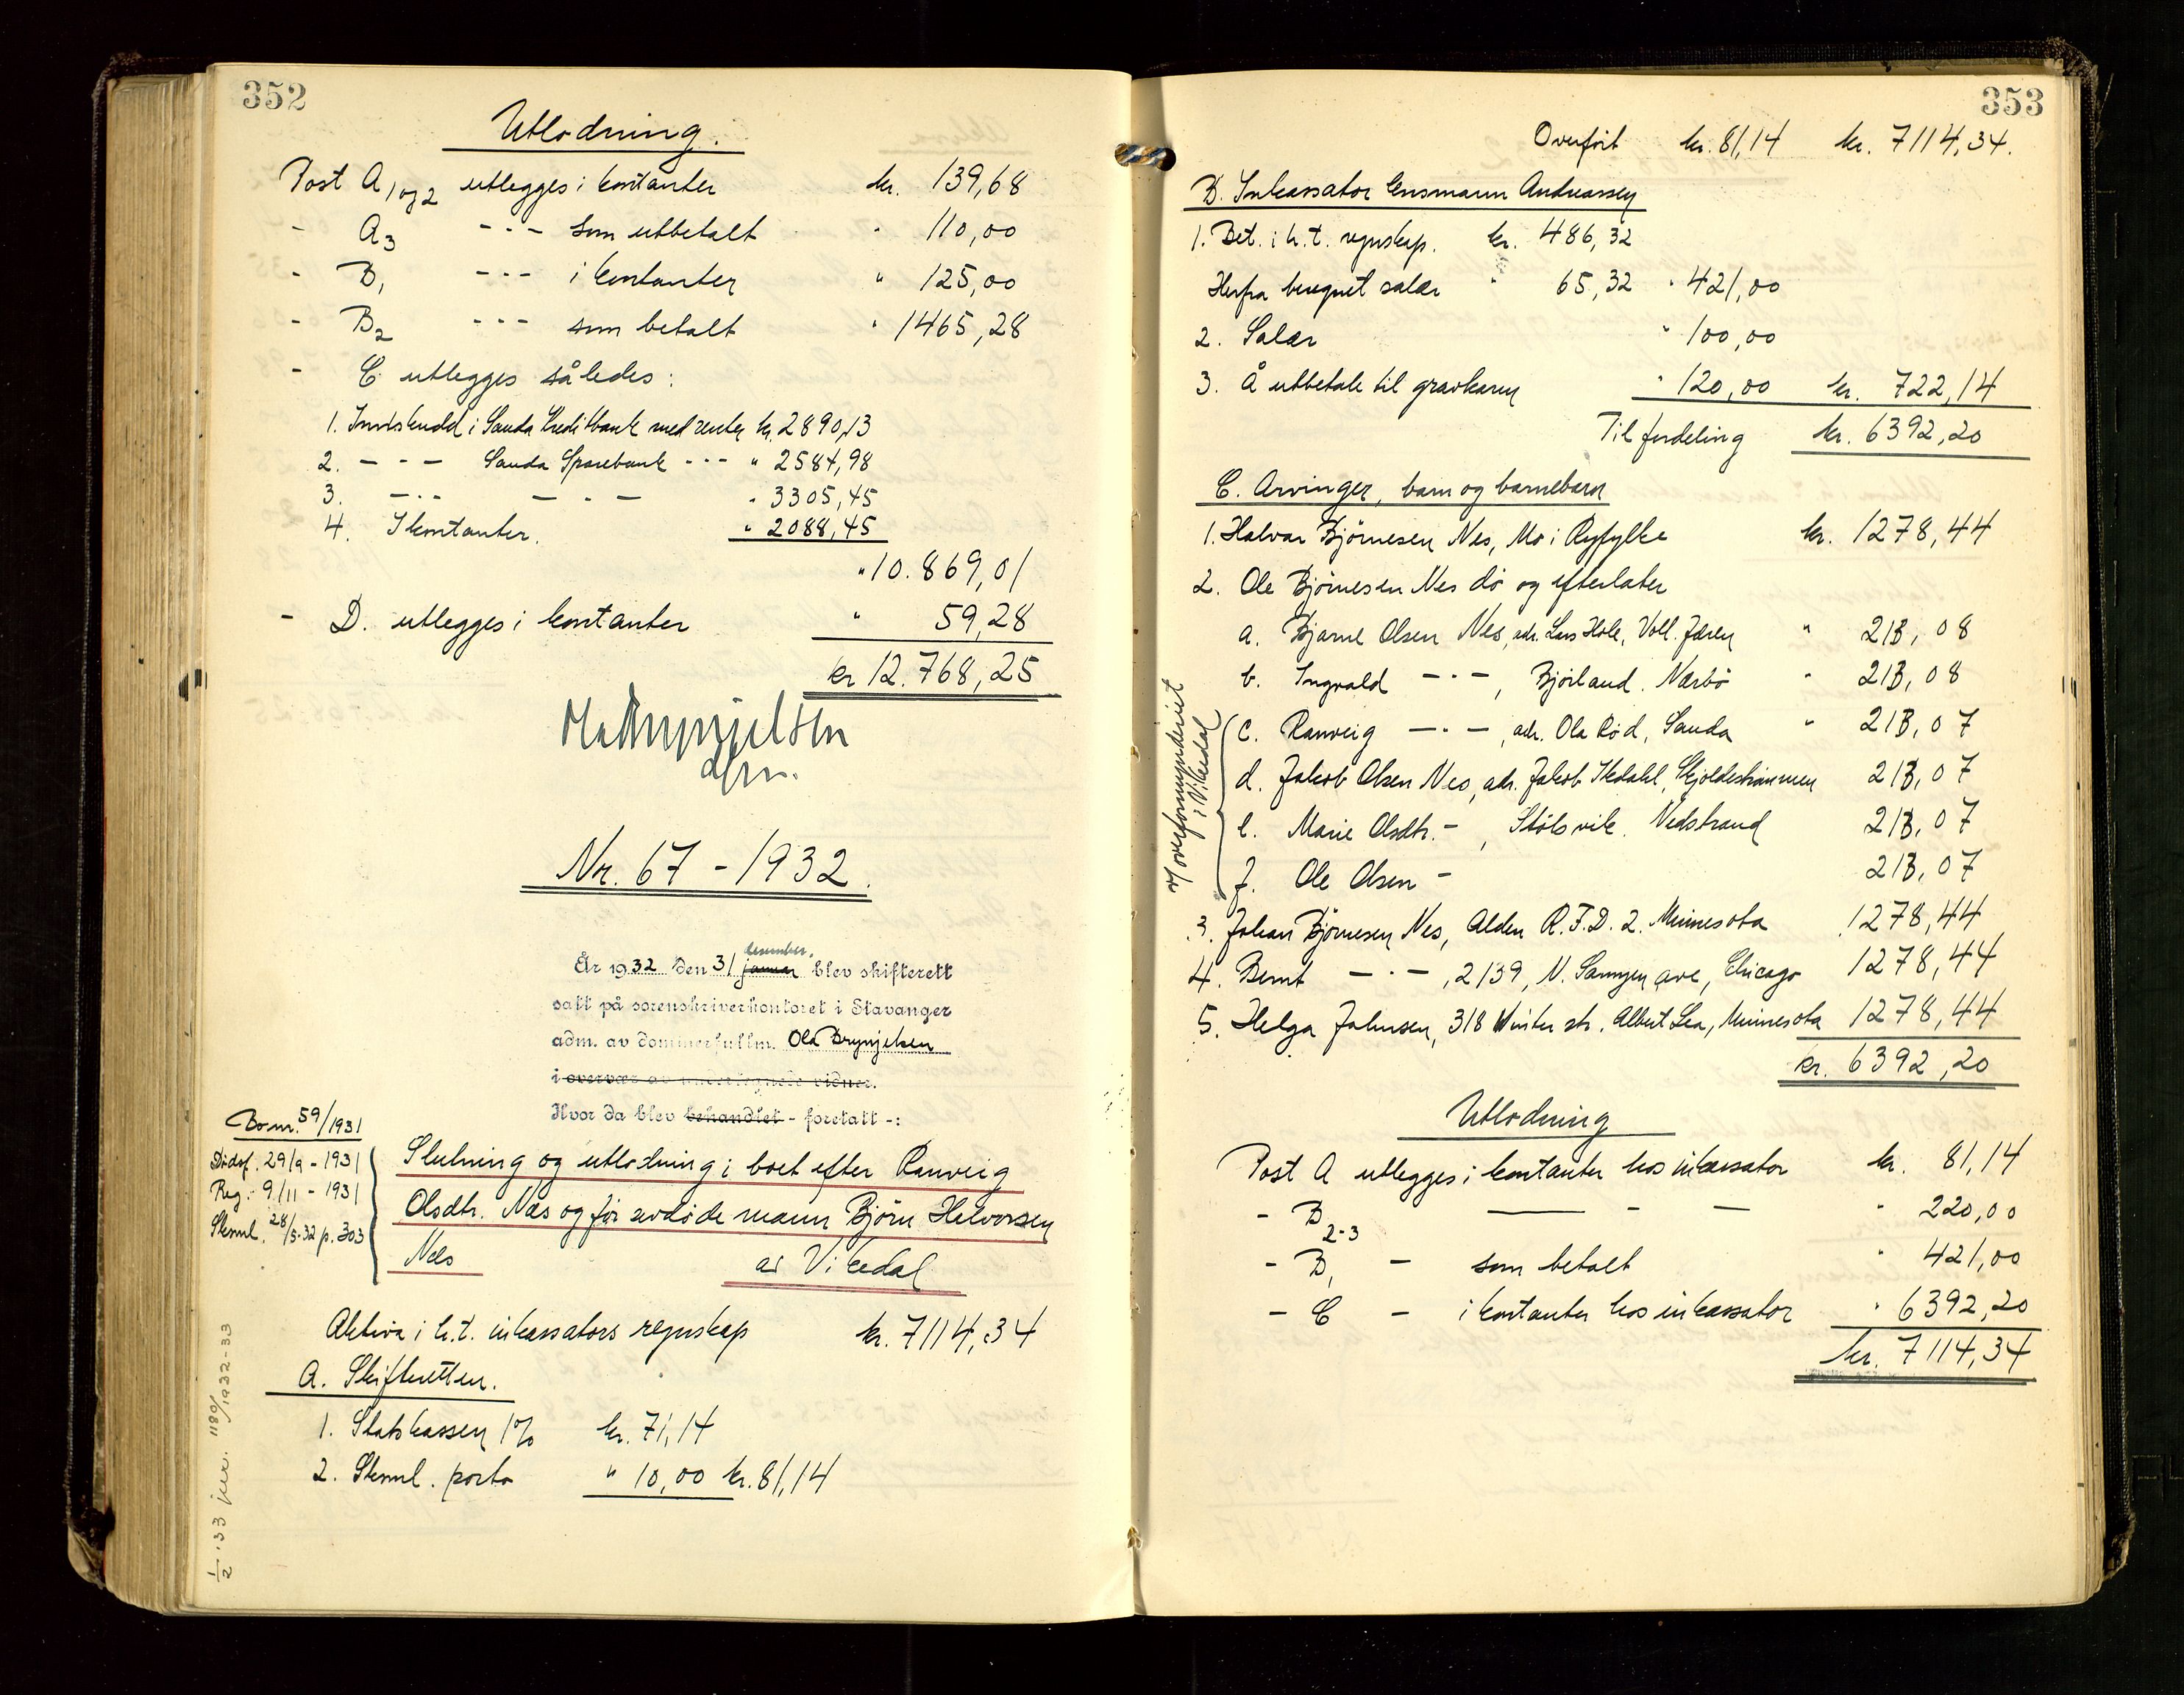 352
Utlodning.
Post A 1 og 2 utlegges i kontanter kr. 139,68
- A3 - - - som utbetalt " 110,00
- B1 - - - i kontanter " 125,00
- B2 - - - som betalt " 1465,28
- C utlegges således:
1. Innskudd i Sauda Kreditbank med renter kr. 2890,13
2. - - - Sauda Sparebank - - - " 2584,98
3. - - - - - - " 3305,45
4. I kontanter. " 2088,45
" 10.869,01
- D. utlegges i kontanter " 59,28
kr 12.768,25
Ola Brynjelsen
dfm.
Nr. 67 - 1932.
desember.
År 1932 den 31 januar blev skifterett
satt på sorenskriverkontoret i Stavanger
adm. av dommerfullm. Ola Brynjelsen
i overvær av undertegnede vidner.
Hvor da blev behandlet - foretatt -:
Bo nr. 59/1931
Dødsf. 29/9 - 1931
Reg. 9/11 - 1931
Sksml. 28/5-32 p. 303
Slutning og utlodning i boet efter Ranveig
Olsdtr. Næs og før avdøde mann Bjørn Halvorsen
Næs av Vikedal
Aktiva i h.t. inkassators regnskap kr. 7114,34
A. Skifteretten.
1. Statskassen 1% kr. 71,14
2. Sksml. porto " 10,00 kr. 81,14
1/2 .33 jnr. 1180/1932-33
353
Overført kr. 81,14 kr. 7114,34.
B. Inkassator Ensmann Andreassen
1. Bet. i h.t. regnskap. kr. 486,32
Herfra beregnet salær " 65,32 " 421,00
2. Salær " 100,00
3. Å utbetale til gravkaren " 120,00 kr. 722,14
Til fordeling kr. 6392,20
C. Arvinger, barn og barnebarn
1. Halvar Bjørnesen Nes, Mo i Ryfylke kr. 1278,44
2. Ole Bjørnesen Nes dø og efterlater
a. Bjarne Olsen Nes, adr. Lars Hole, Voll. Jæren " 213,08
b. Ingvald - " -, Bjorland. Nærbø " 213,08
v/ overformynderiet i Vikedal
c. Ranveig - " -, adr. Ola Rød, Sauda " 213,07
d. Jakob Olsen Nes, adr. Jakob Ilsdahl, Skjoldestraumen 213,07
e. Marie Olsdtr. -, Stølsvik. Nedstrand 213,07
f. Ole Olsen - 213,07
3. Johan Bjørnesen Nes, Alden R.F.D. 2. Minnesota 1278,44
4. Bernt - " -, 2139, N. Sawyer ave, Chicago 1278,44
5. Helga Johnsen, 318 Winter str. Albert Lea, Minnesota 1278,44
kr. 6392,20
Utlodning
Post A utlegges i kontanter hos inkassator kr. 81,14
- B 2-3 - - - " 220,00
- B1 - som betalt " 421,00
- C - i kontanter hos inkassator " 6392,20
kr. 7114,34